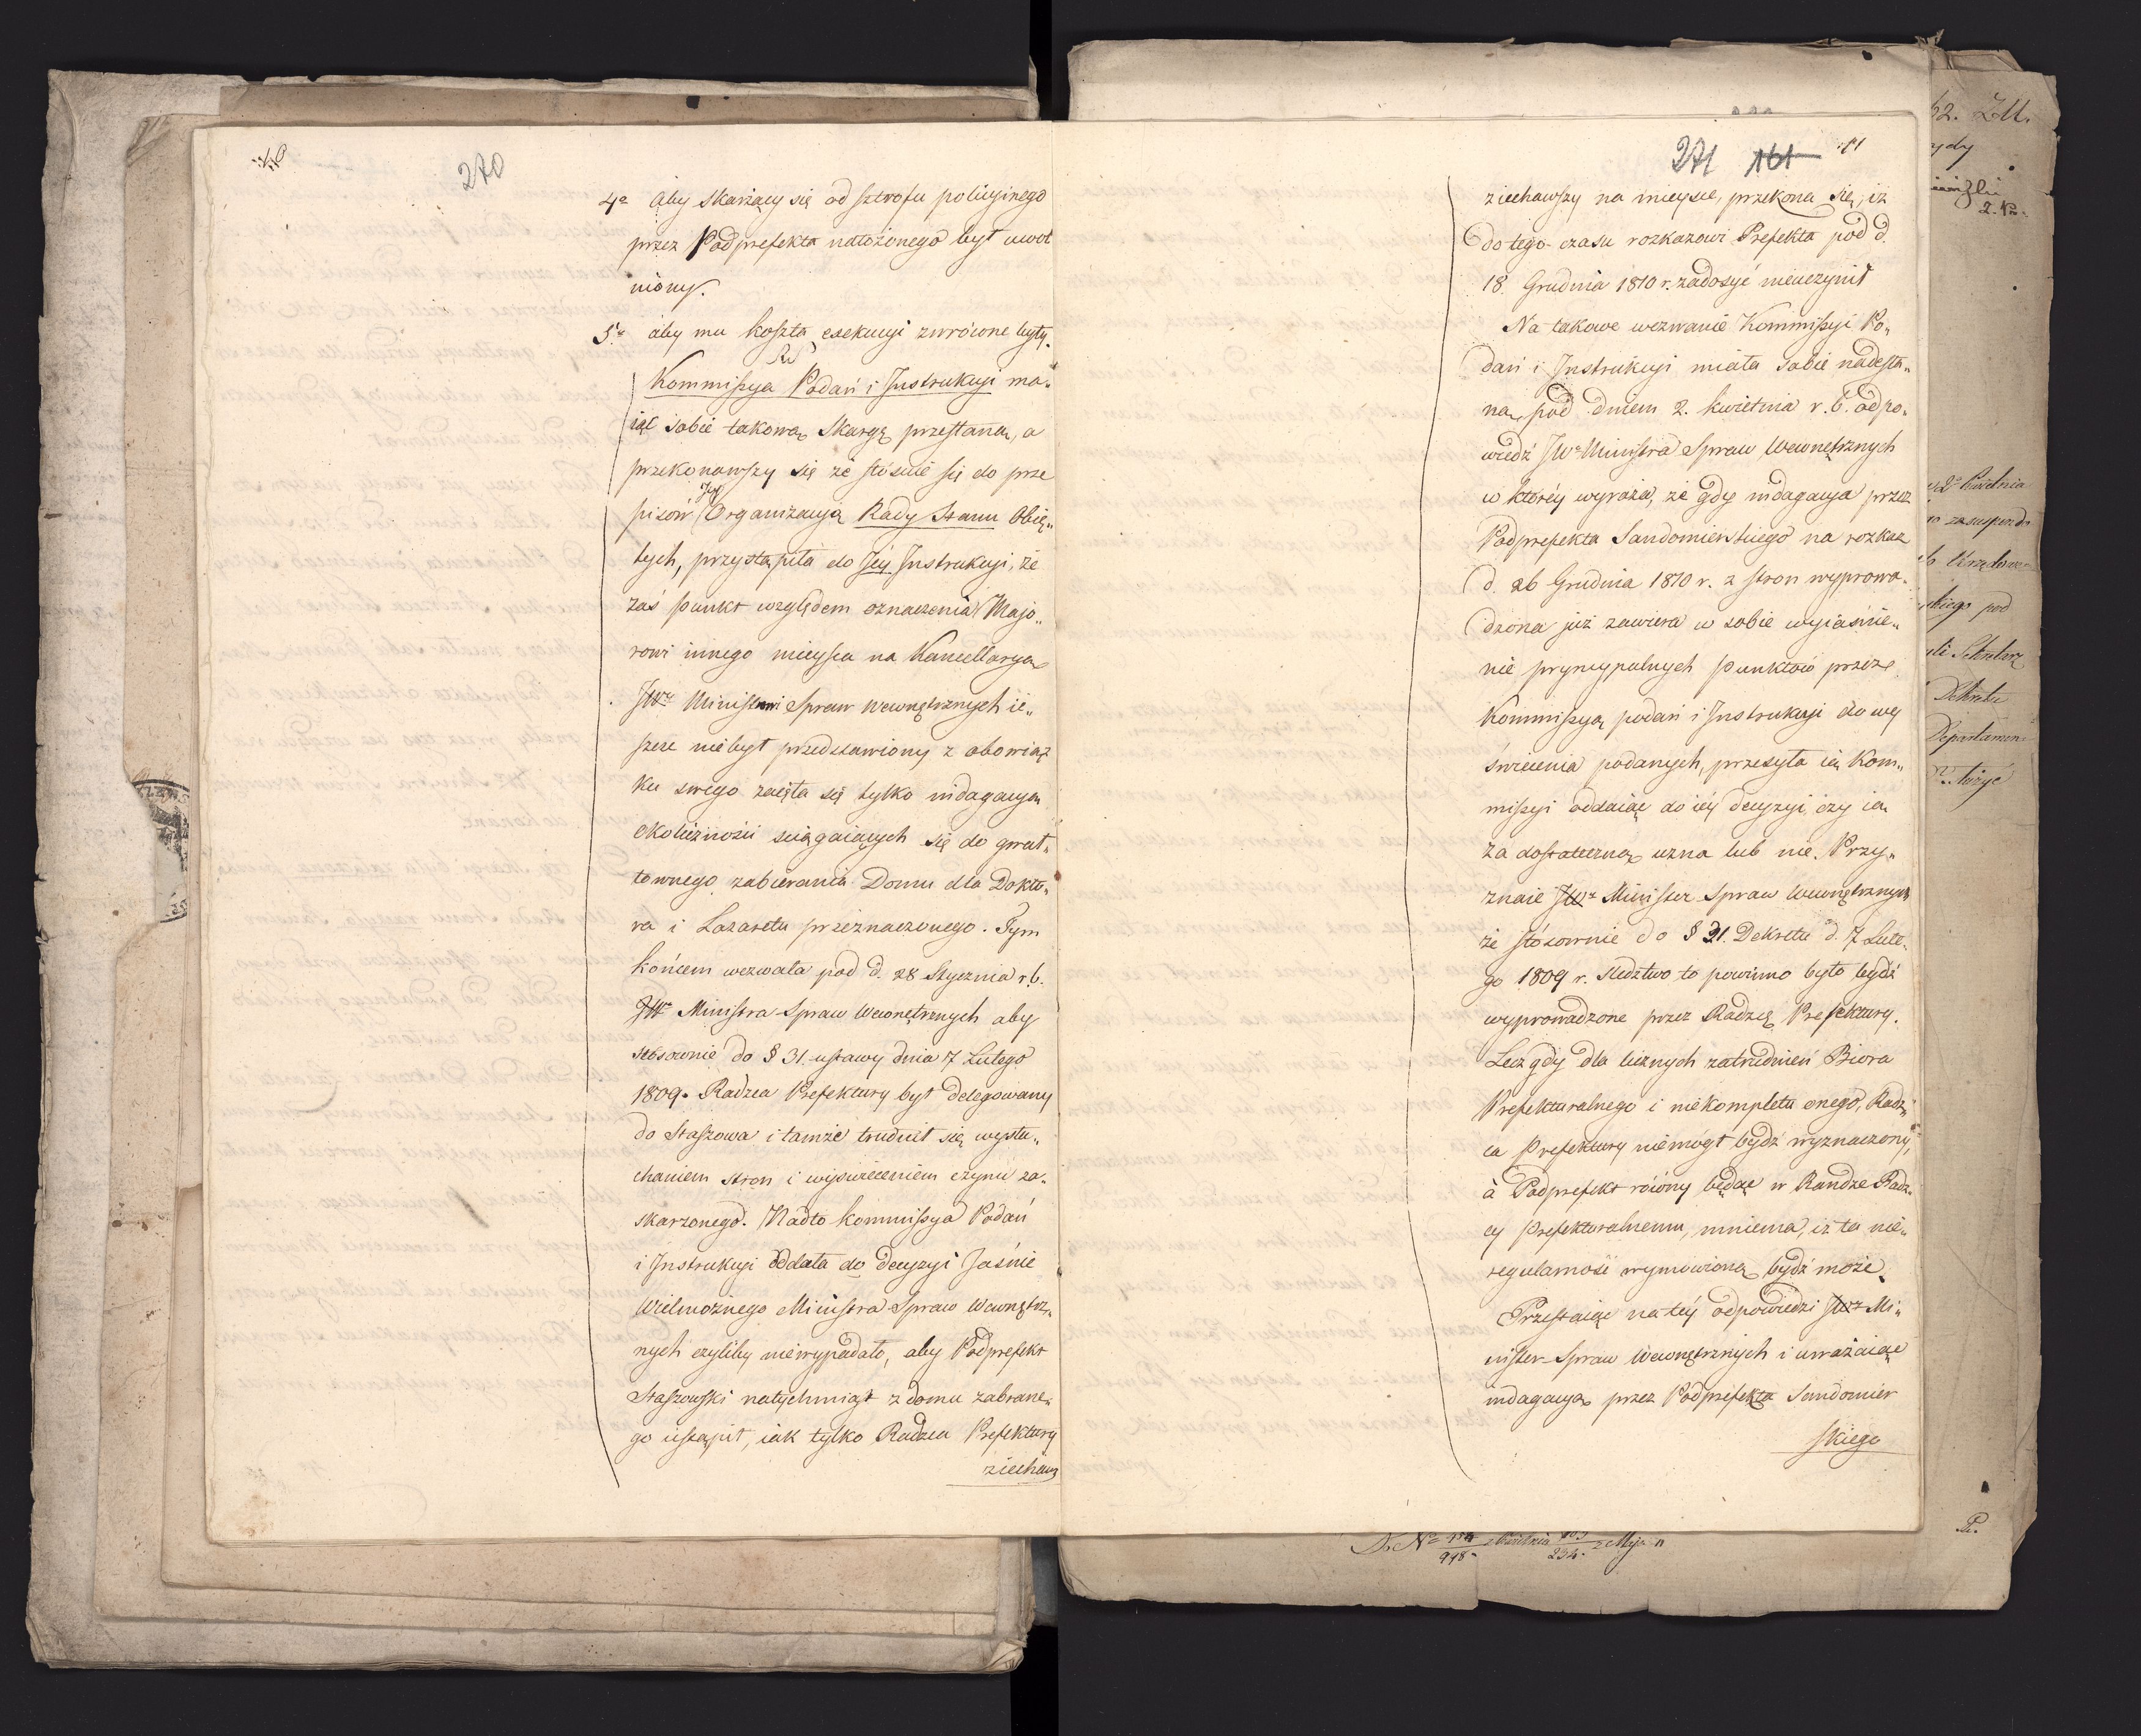 270
4o aby skarżący się od sztrofu policyinego
przez Podprefekta nałożonego był uwol
niony.
5o aby mu koszta exekucyi zwrócone były.
Kommissya Podań i Instrukcyi ma„
iąc sobie takową skargę przesłaną, a
przekonawszy się że stósuie się do prze
pisów Organizacyą Rady Stanu obię„
tych, przystąpiła do Jey Instrukcyi, że
zaś punkt względem oznaczenia Majo„
rowi innego mieysca na Kancellaryą
JWu Ministrowi Spraw Wewnętrznych ie„
szcze niebył przedstawiony z obowiąz
ku swego zaięła się tylko indagacyą
okoliczności sciągaiących się do gwał„
townego zabierania Domu dla Dokto„
ra i Lazaretu przeznaczonego. Tym
końcem wezwała pod d. 28 Stycznia r.b.
JWo Ministra Spraw Wewnętrznych aby
stósownie do § 31. ustawy dnia 7 Lutego
1809. Radzca Prefektury był delegowany
do Staszowa i tamże trudnił się wysłu„
chaniem stron i wyświeceniem czynu za„
skarzonego. Nadto Kommissya Podań
i Instrukcyi oddała do decyzyi Jaśnie
Wielmożnego Ministra Spraw Wewnętrz„
nych czyliby niewypadało, aby Podprefekt
Staszowski natychmiast z domu zabrane„
go ustąpił, iak tylko Radzca Prefektury
ziechaw
271 161
ziechawszy na mieysce, przekona się, iż
do tego czasu rozkazowi Prefekta pod d.
18. Grudnia 1810 r. zadosyć nieuczynił
Na takowe wezwanie Kommissyi Po„
dań i Instrukcyi miała sobie nadesła„
ną pod dniem 2. Kwietnia r. b. odpo„
wiedź JWo Ministra Spraw Wewnętrznych
w któréy wyraża, że gdy indagacya przez
Podprefekta Sandomierskiego na rozkaz
d. 26 Grudnia 1810 r. z stron wyprowa„
dzona już zawiera w sobie wyiaśnie„
nie pryncypalnych punktów przez
Kommissyą podań i Instrukcyi do wy
świecenia podanych, przesyła ią Kom„
missyi oddaiąc do iéy decyzyi, czy ią
za dostateczną uzna lub nie. Przy„
znaie JWu Minister Spraw Wewnętrznych
że stósownie do § 31. Dekretu d. 7 Lute„
go 1809 r. sledztwo to powinno było bydź
wyprowadzone przez Radzcę Prefektury.
Lecz gdy dla licznych zatrudnień Biora
Prefekturalnego i niekompletu onego, Radz„
ca Prefektury niemógł bydź wyznaczony,
a Podprefekt równy będąc w Randze Radz„
cy Prefekturalnemu, mniema, iż ta nie„
regularność wymowioną bydź może.
Przestaiąc na téy odpowiedzi JWo Mi„
nister Spraw Wewnętrznych i uważaiąc
indagacyą przez Podprefekta Sandomier
skiego
ZU.
ydy
Kwietnia
zasuspend
pod
Dekretu
Departamen